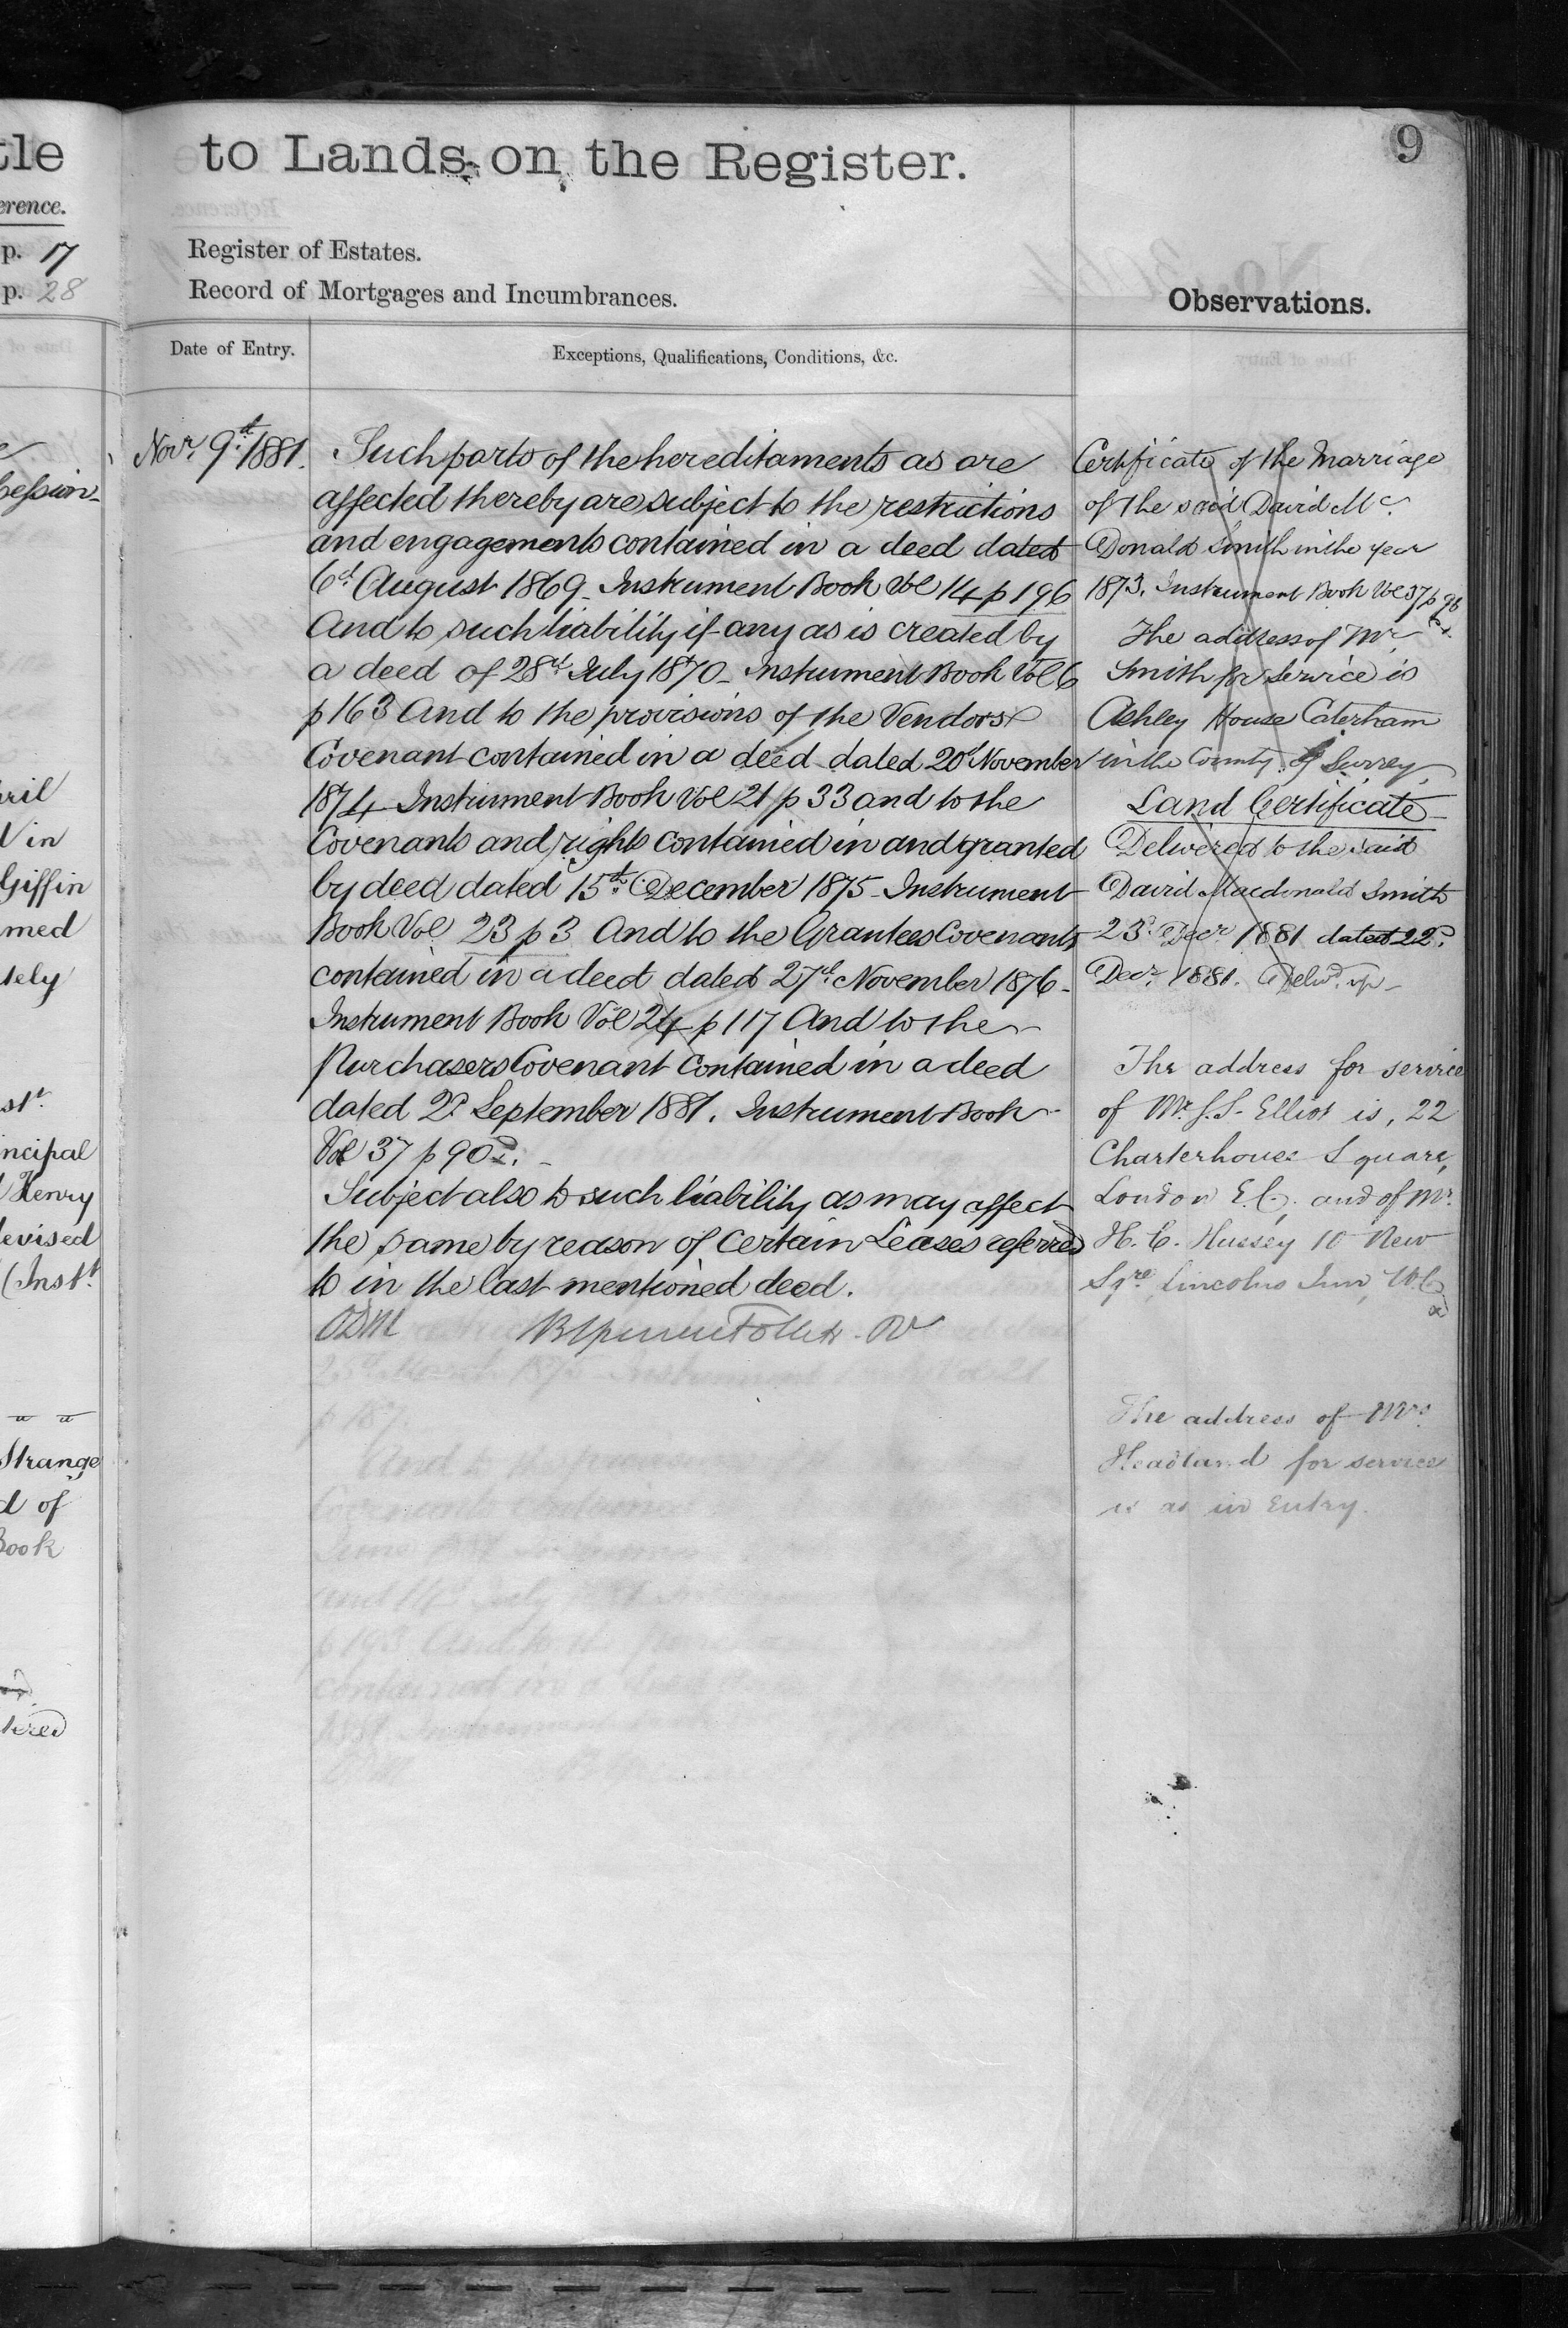 tle
erence.
p. 17
p. 28
cession
ril
in
Giffin
med
tely
st.
ncipal
Henry
evised
(Inst.
Strange
d of
Book
tered
to Lands on the Register.
9
Register of Estates.
Record of Mortgages and Incumbrances.
Observations.
Date of Entry.
Exceptions, Qualifications, Conditions, &c.
Novr. 9th 1881.
Such parts of the hereditaments as are
affected thereby are subject to the restrictions
and engagements contained in a deed dated
6th August 1869 - Instrument Book Vol 14 p 196
And to such liability if any as is created by
a deed of 28th July 1870 - Instrument Book Vol 6
p 163 And to the provisions of the Vendors
Covenant contained in a deed dated 20th November
1874 Instrument Book Vol 21 p 33 and to the
Covenants and rights contained in and granted
by deed dated 15th December 1875 - Instrument
Book Vol 23 p 3 And to the Grantees Covenants
contained in a deed dated 27th November 1876 -
Instrument Book Vol 24 p 117 And to the
Purchasers Covenant contained in a deed
dated 2d September 1881. Instrument Book
Vol 37 p 90
Subject also to such liability as may affect
the same by reason of certain Leases referred
to in the last mentioned deed.
Certificate of the Marriage
of the said David Mc.
Donald Smith in the year
1873. Instrument Book Vol 37 p 96
The address of Mr.
Smith for service is
Ashley House Caterham
in the County of Surrey
Land Certificate
Delivered to the said
David Macdonald Smith
23d Decr 1881 dated 22d
Decr 1881. Delvd. up -
The address for service
of Mr. J. S. Elliot is, 22
Charterhouse Square,
London E.C. and of Mr.
H. C. Hussey 10 New
Sqre Lincolns Inn, W.C.
The address of Mrs.
Headland for service
is as in Entry.